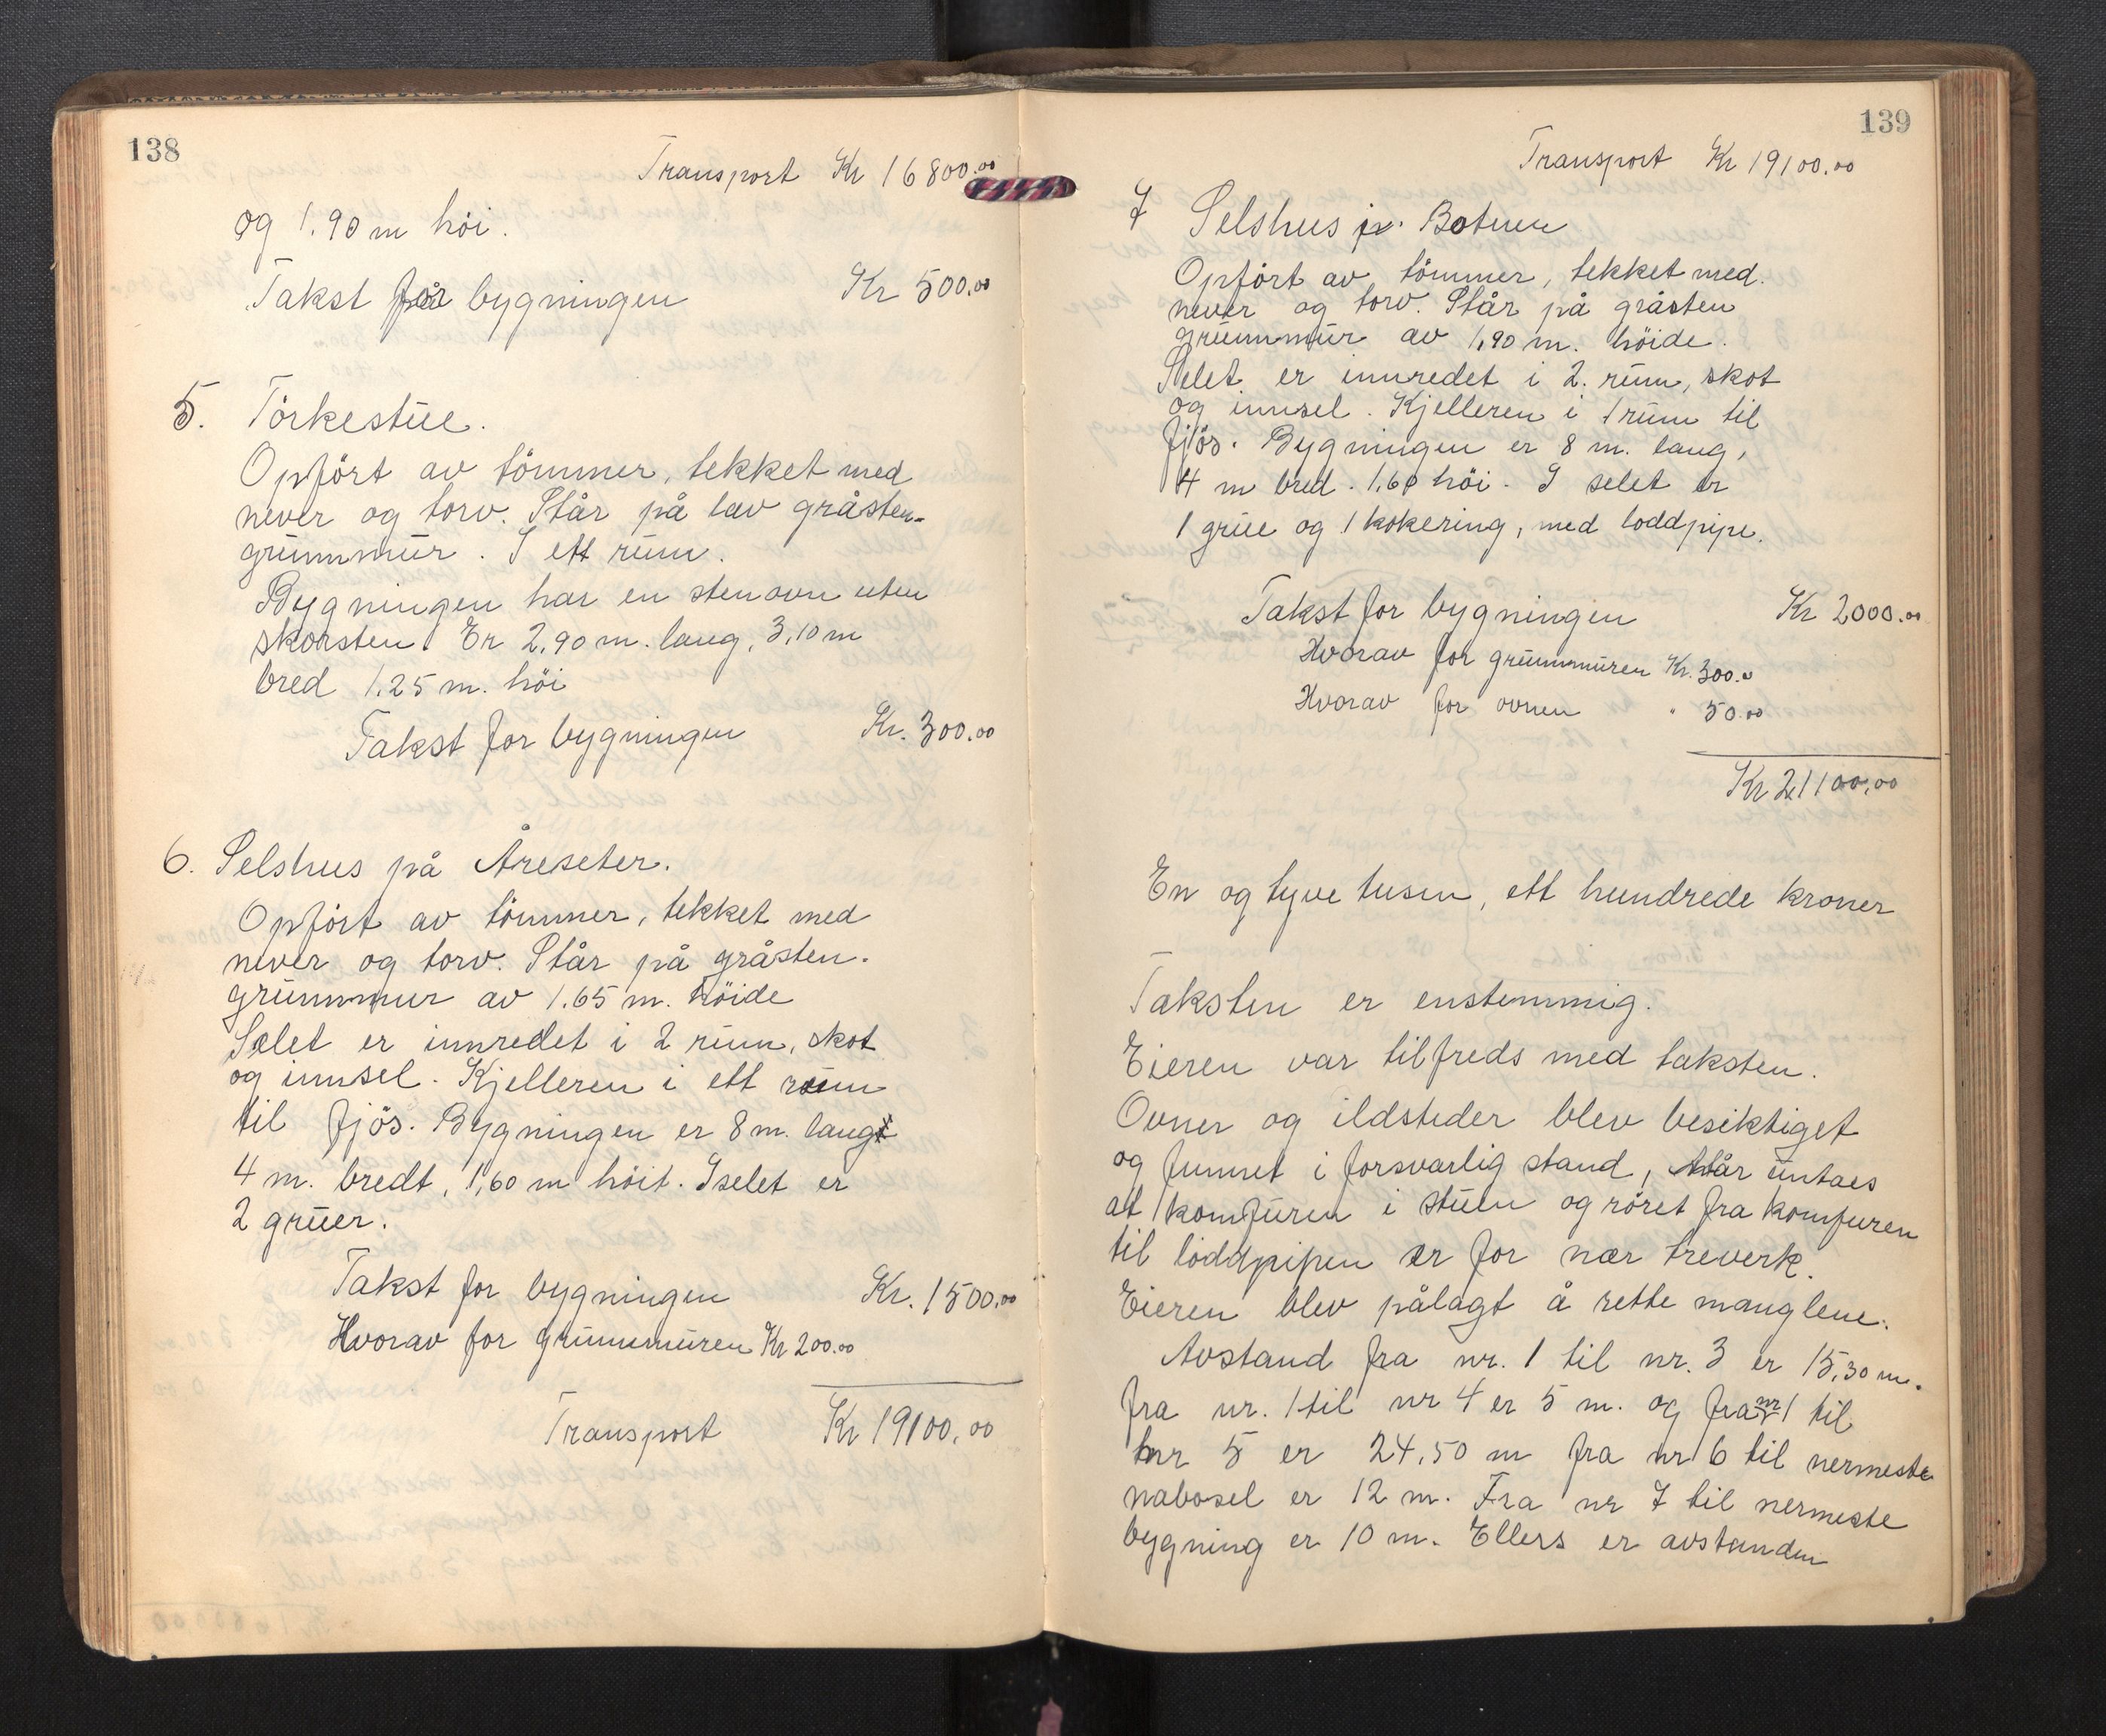 138
Transport Kr 16800.00
og 1.90 m höi.
Takst for bygningen Kr 500.00
5. Törkestúe.
Opfört av tömmer, tekket med
never og torv. Står på lav gråsten-
grúnnmúr. I ett rúm.
Bygningen har en stenovn uten
skorsten. Er 2,90 m. lang, 3,10 m
bred 1.25 m. höi
Takst for bygningen Kr. 300.00
6. Selshus på Åreseter.
Opfört av tömmer, tekket med
never og torv. Står på gråsten-
grúnnmur av 1.65 m. höide
Selet er innredet i 2 rúm, skot
og innsel. Kjelleren i ett rúm
til fjös. Bygningen er 8 m. langt
4 m. bredt, 1,60 m höit. I selet er
2 grúer.
Takst for bygningen Kr. 1500.00
Hvorav for grúnnmúren Kr 200.00
Transport Kr 19100.00
139
Transport Kr 19100.00
7 Selshus på Botnen
Opfört av tömmer, tekket med
never og torv. Står på gråsten
grúnnmúr av 1,90 m. höide.
Selet er innredet i 2. rúm, skot
og innsel. Kjelleren i 1 rúm til
fjös. Bygningen er 8 m. lang,
4 m bred. 1,60 höi. I selet er
1 grúe og 1 kokering, med loddpipe.
Takst for bygningen Kr 2000.00
Hvorav for grúnnmúren Kr. 300.00
Hvorav for ovnen " 50.00
Kr 21100,00
En og tyve tusen, ett hundrede kroner
Taksten er enstemmig.
Eieren var tilfreds med taksten.
Ovner og ildsteder blev besiktiget
og funnet i forsvarlig stand, når úntaes
at komfúren i stúen og röret fra komfuren
til loddpipen er for nær treverk.
Eieren blev pålagt å rette manglene.
Avstand fra nr. 1 til nr. 3 er 15,30 m.
fra nr. 1 til nr 4 er 5 m. og fra nr 1 til
nr 5 er 24,50 m fra nr 6 til nermeste
nabosel er 12 m. Fra nr 7 til nermeste
bygning er 10 m. Ellers er avstanden